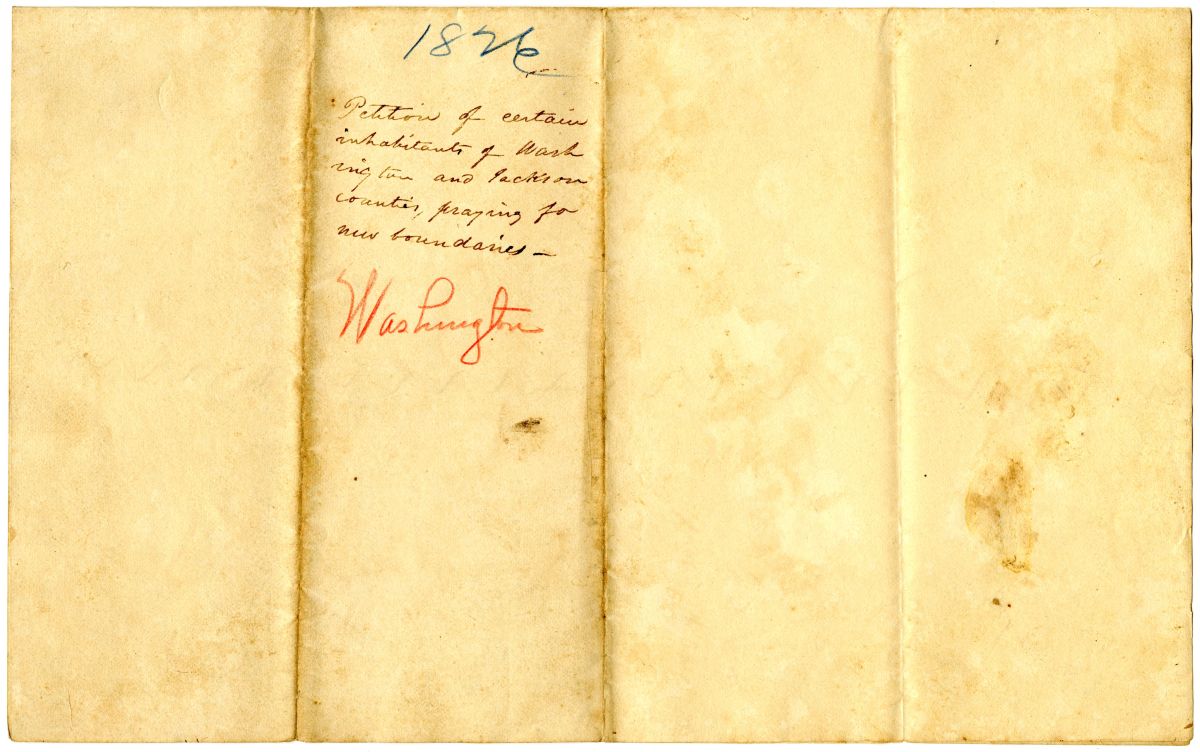 1826
Petition of certain
inhabitants of Wash
ington and Jackson
counties, praying for
new boundaries —
Washington